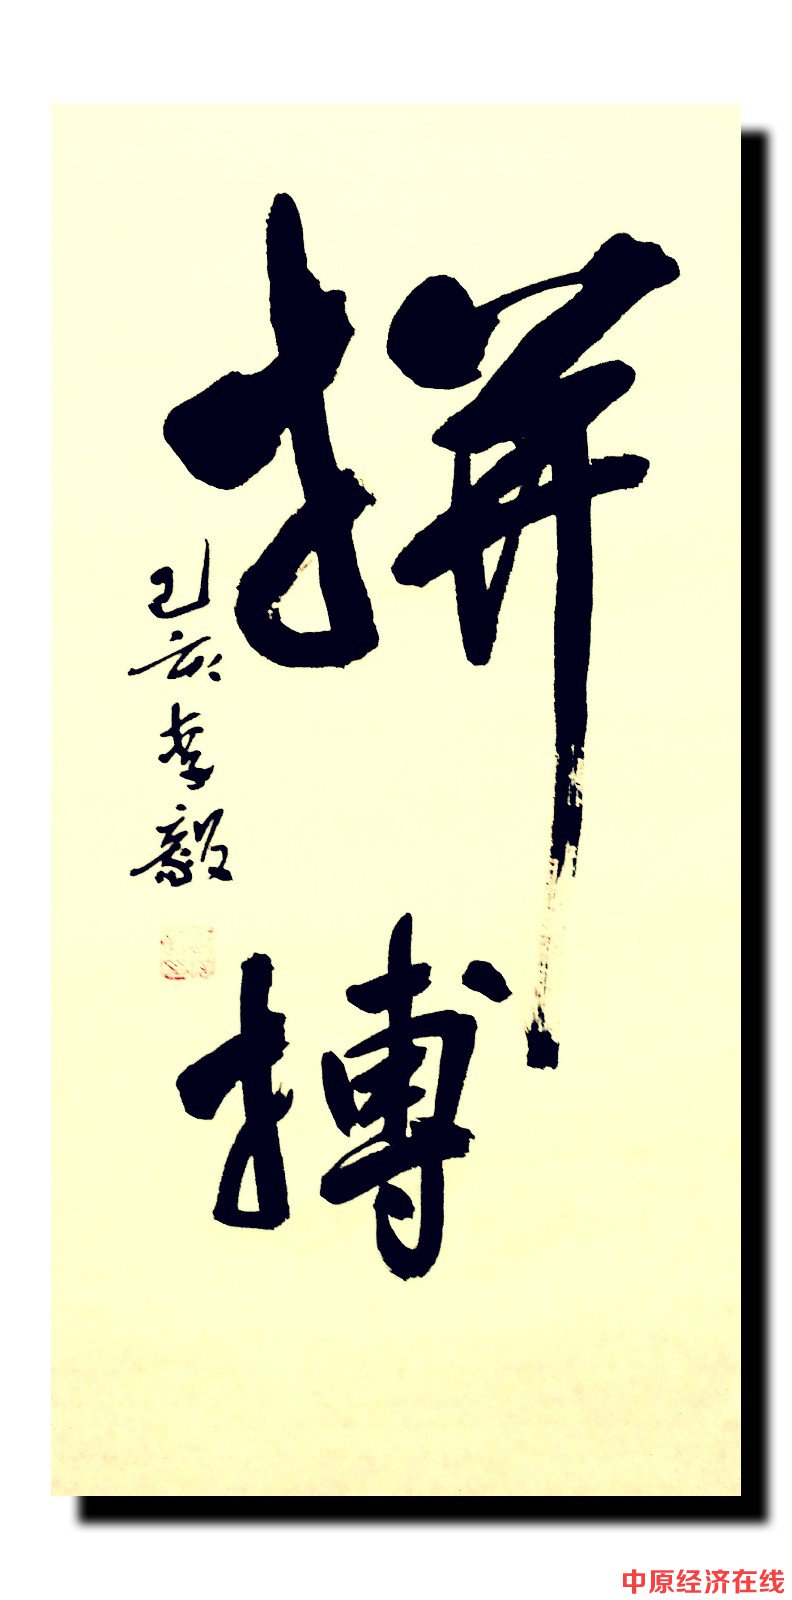 拼搏
己亥李毅
中原经济在线